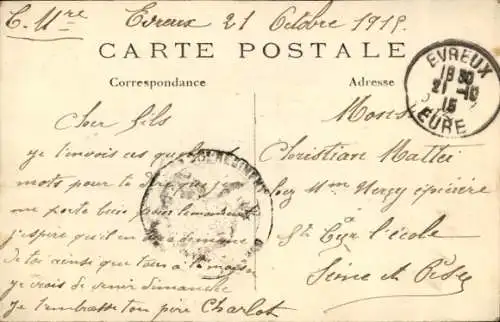 C. Mre Evreux 21 Octobre 1915.
CARTE POSTALE
Correspondance
Adresse
EVREUX
18 30
21 -10
15
EURE
Cher fils
je t'envois ces quelques
mots pour te dire que je
me porte bien pour le moment
j'espère qu'il en de même
de toi ainsi que tous à la maison
je vais de venir dimanche
Je t'embrasse ton père Charlot
Monsieur
Christian Mattei
chez Mme épicière
St Cyr l'école
Seine et Oise